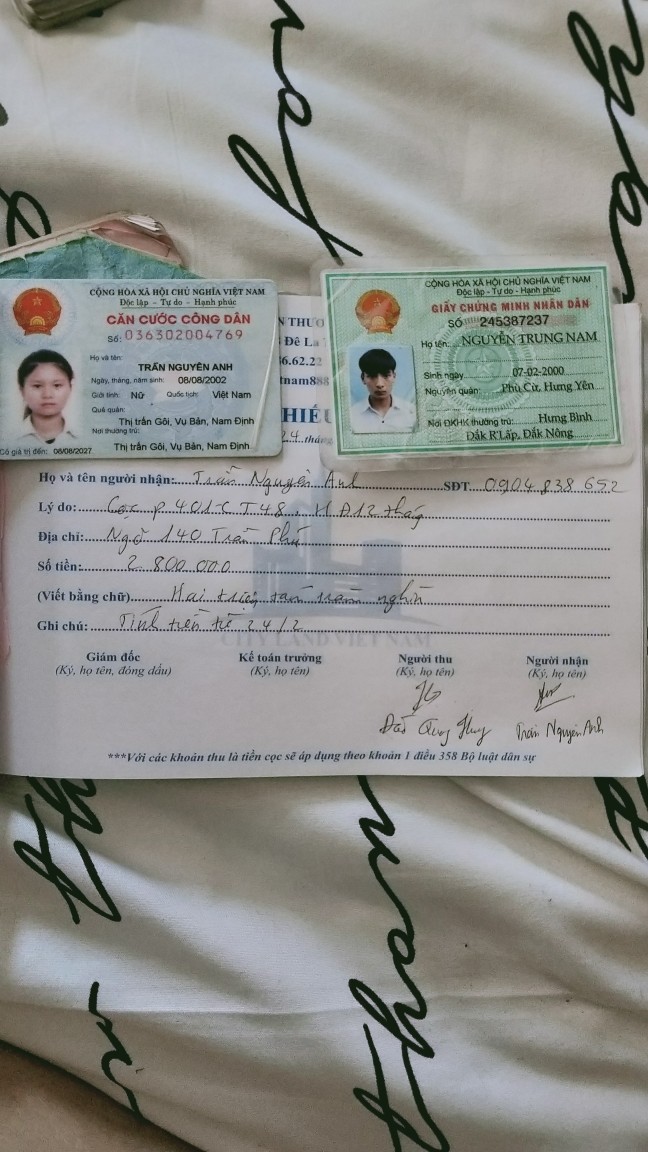 CỘNG HÒA XÃ HỘI CHỦ NGHĨA VIỆT NAM
Độc lập - Tự do - Hạnh phúc
CĂN CƯỚC CÔNG DÂN
Số: 036302004769
Họ và tên:
TRẦN NGUYÊN ANH
Ngày, tháng, năm sinh: 08/08/2002
Giới tính: Nữ Quốc tịch: Việt Nam
Quê quán:
Thị trấn Gôi, Vụ Bản, Nam Định
Nơi thường trú:
Thị trấn Gôi, Vụ Bản, Nam Định
Có giá trị đến: 08/08/2027
CỘNG HÒA XÃ HỘI CHỦ NGHĨA VIỆT NAM
Độc lập - Tự do - Hạnh phúc
GIẤY CHỨNG MINH NHÂN DÂN
Số 245387237
Họ tên: NGUYỄN TRUNG NAM
Sinh ngày 07-02-2000
Nguyên quán: Phù Cừ, Hưng Yên
Nơi ĐKHK thường trú: Hưng Bình
Đắk R'Lấp, Đắk Nông
Họ và tên người nhận: Trần Nguyên Anh SĐT 0904 838 652
Lý do: Cọc p 401-C T48, HĐ 12 tháng
Địa chỉ: Ngõ 140 Trần Phú
Số tiền: 2 800 000
(Viết bằng chữ) Hai triệu tám trăm nghìn
Ghi chú: Tính tiền từ 24/2
CITY LAND VIỆT NAM
Giám đốc Kế toán trưởng Người thu Người nhận
(Ký, họ tên, đóng dấu) (Ký, họ tên) (Ký, họ tên) (Ký, họ tên)
Đào Quang Huy Trần Nguyên Anh
***Với các khoản thu là tiền cọc sẽ áp dụng theo khoản 1 điều 358 Bộ luật dân sự